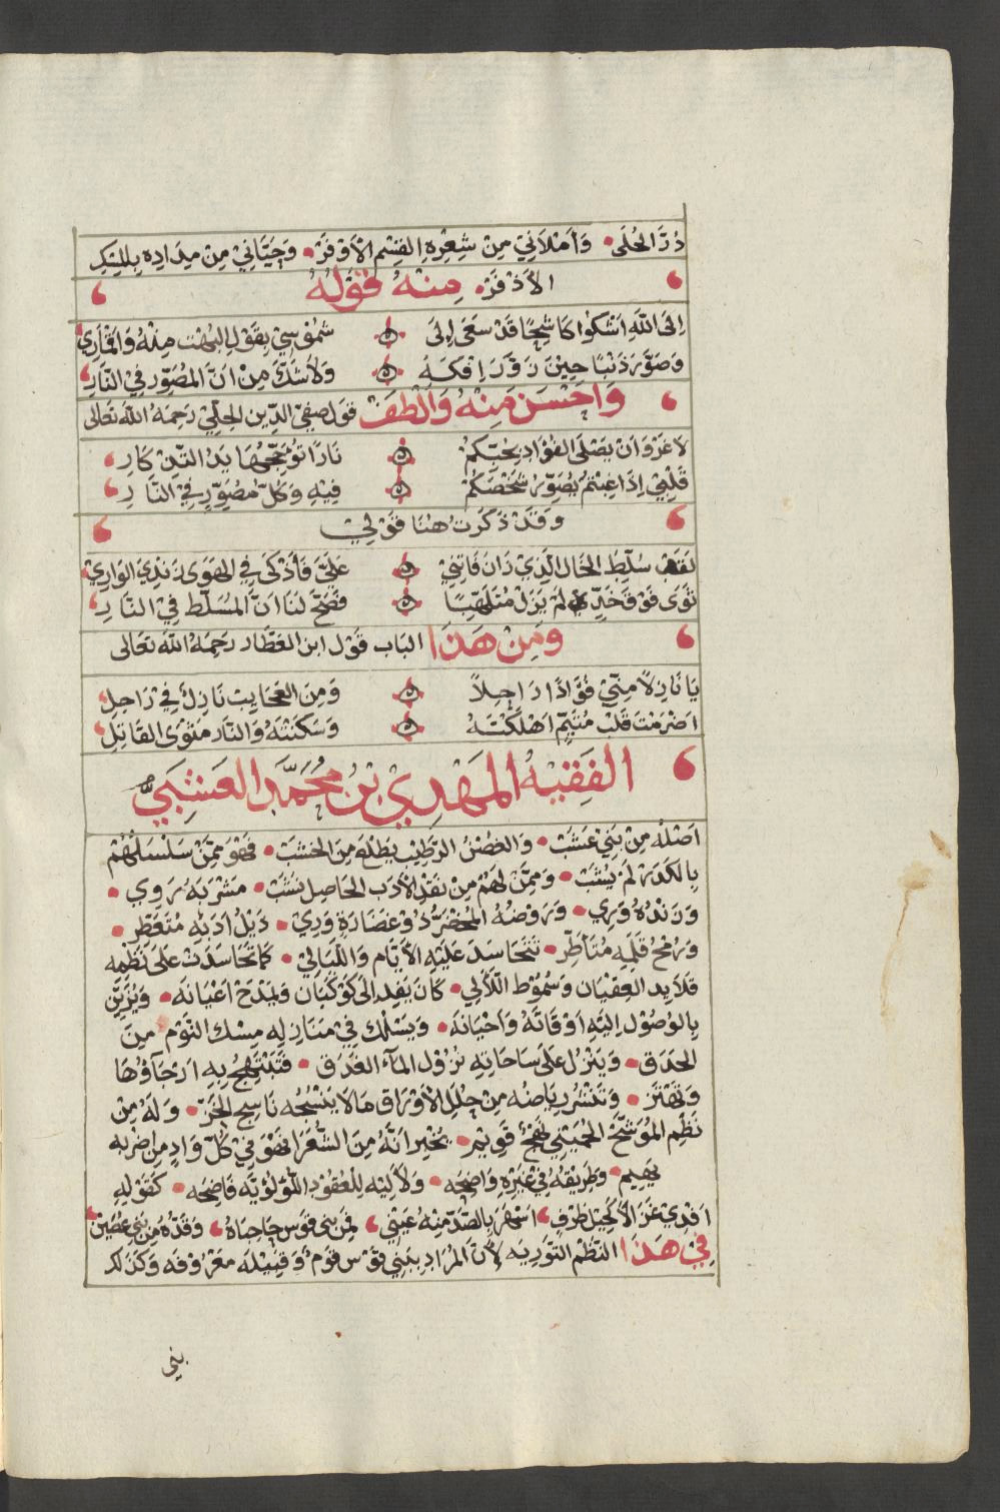 دُرَّ الحُلَى • وَاَمْلاَنِيْ مِنْ شِعْرِهِ القِسْم الْاَوْفَرْ • وَحَيَّانِيْ مِنْ مِدَادِهِ بِالمِسْكِ
الاَذْفَرْ • مِنْهُ قَوْلُهُ
اِلَى اللهِ اَشْكُوْا كَاشِحًا قَدْ سَعَى اِلَى ۞ شُمُوْسِيْ بِقَوْلِ البُهْتِ مِنْهُ وَاَقْمَارِيْ
وَصَوَّرَ ذَنْبًا حِيْنَ زَوَّرَ اِفْكَهُ ۞ وَلاَ شَكَّ مِنْ اَنَّ المُصَوِّر فِي النَّارِ
وَاَحْسَن مِنْهُ وَاَلْطَفْ قَول صفيّ الدِّين الحِلّيّ رَحِمَهُ اللهُ تعَالى
لاَ غَرْوَ اَنْ يَصْلَى الفُؤَاد بِحُبّكمْ ۞ نَارًا تُؤَجّجُهَا يَدُ التّذكَارِ
قَلْبِيْ اِذَا غِبْتُمْ يُصَوّرُ شَخْصَكُمْ ۞ فِيْهِ وَكُلّ مُصَوِّرٍ فِي النَّارِ
وَقَدْ ذَكَرْتُ هُنَا قَوْلِيْ
لقَد سُلّطَ الخَال الَّذِيْ زَانَ فَاتِنِيْ ۞ عَلَيَّ فَاَذْكَى فِي الهَوَى زَنْدِيَ الوَارِيْ
ثَوَى فَوْقَ خَدٍّ لَمْ يَزَلْ مُتَلَهّبًا ۞ فَصَحَّ لَنَا اَنَّ المُسَلَّط فِي النَّارِ
وَمِنْ هَذَا البَاب قَوْل ابن العَطَّار رَحِمَهُ اللهُ تعَالى
يَا نَازِلاً مِنّيْ فُؤَادًا رَاحِلاً ۞ وَمِنَ العَجَايبِ نَازِلٌ فِيْ رَاحِل
اَضْرَمْتَ قَلْبَ مُتَيَّمٍ اَهْلَكْتَهُ ۞ وَسَكَنْتَهُ وَالنَّار مَثْوَى القَاتِل
الفَقِيْهُ المَهْدِيْ بْنُ مُحَمَّدٍ العَنْسِيّ
اَصْلُهُ مِنْ بَنِيْ عَنْسَبْ • وَالغُصْنُ الرَّطِيْب يَطْلَعُ مِنَ الخَشَبْ • فَهْوَ مِمَّنْ سَلْسَلُهُمْ
بِالكَدَرْ لَمْ يُشَبْ • وَمِمَّنْ لَهُمْ مِنْ نقْدِ الاَدَب الحَاصِل نَشَبْ • مَشْرَبُهُ رَوِي •
وَزَنْدُهُ وَرِي • وَرَوْضُهُ المُخْضَرُّ ذُوْ غضَارَةٍ وَرِيّ • ذَيْلُ اَدَبِهِ مُتَعَطِّر •
وَرُمْحُ قَلَمِهِ مُتَأَطّر • تَتَحَاسَدُ عَلَيْهِ الاَيَّام وَاللّيَالِي • كَمَا تَحَاسَدَتْ عَلَى نَظْمِه
قَلاَيد العِقيَان وَسُمُوْط اللّآلِي • كَانَ يَفِد اِلَى كَوْكَبَان وَيَمْدَحُ اَعْيَانَه • وَيُزَيّن
بِالوُصُوْل اِلَيْهِ اَوْقَاتَهُ وَاَحْيَانَهُ • وَيَسْلُكُ فِيْ مَنَازِلِهِ مِسْلكَ النَّوْم مِنَ
الحَدَق • وَيَنْزلُ عَلَى سَاحَاتِهِ نُزُوْلَ المآءِ الغَدَق • فَتَبْتَهِجُ بِهِ اَرْجَآؤُهَا
وَتَهْتَزّ • وَتَنْشُرُ رِيَاضُه مِنْ حُلَل الْاَوْرَاق مَا لاَ يَنْسُجُهُ نَاسِج الخَزّ • وَلَهُ مِنْ
نَظْمِ المُوَشَّحِ الحُمَيْنِيّ نَهْجٌ قَوِيْم • يُخْبِرُ اَنَّهُ مِنَ الشُّعَرَا فَهْوَ فِيْ كُلّ وَادٍ مِنْ اَضرُبِه
يَهِيْم • وَطَرِيْقَهُ فِيْ غَيْرِهِ وَاضِحَه • وَلآلِيْه لِلْعُقُوْدِ اللّؤلؤيَّه فَاضِحَه • كَقَوْلِهِ
اَفْدِيْ غَزَالاً كَحِيْل طَرْفٍ، اَسْهَرَ بِالصَّدّ مِنْهُ عَيْنِي، مِنْ بَنِيْ قَوْسٍ حَاجِبَاهُ، وَقَدُّهُ مِنْ بَنِيْ غُصَيْنِ
فِيْ هَذَا النَّظْم التَّوريَه لِأَنَّ المُرَاد بِبَنِيْ قَوْس قَوْم وَقَبِيْلَة مَعْرُوْفَه وَكَذلِكَ
بني